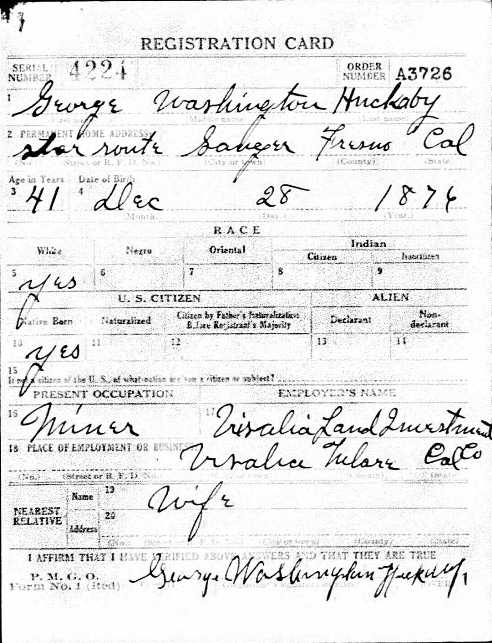 REGISTRATION CARD
SERIAL NUMBER 4224 ORDER NUMBER A3726
1 George Washington Huckaby
(First name) (Middle name) (Last name)
2 PERMANENT HOME ADDRESS
star route Sanger Fresno Cal
(No.) (Street or R. F. D. No.) (City or town) (County) (State)
Age in Years Date of Birth
3 41 4 Dec 28 1876
(Month) (Day) (Year)
RACE
White Negro Oriental Indian
Citizen Noncitizen
5 yes 6 7 8 9
U. S. CITIZEN ALIEN
Native Born Naturalized Citizen by Father's Naturalization Before Registrant's Majority Declarant Non-declarant
10 yes 11 12 13 14
15
If not a citizen of the U. S., of what nation are you a citizen or subject?
PRESENT OCCUPATION EMPLOYER'S NAME
16 Miner 17 Visalia Land Investment
Co
18 PLACE OF EMPLOYMENT OR BUSINESS
Visalia Tulare Cal
(No.) (Street or R. F. D. No.)
NEAREST RELATIVE Name 19 Wife
Address 20
(No.) (State)
I AFFIRM THAT I HAVE VERIFIED ABOVE ANSWERS AND THAT THEY ARE TRUE
P. M. G. O.
Form No. 1 (Red) George Washington Huckaby